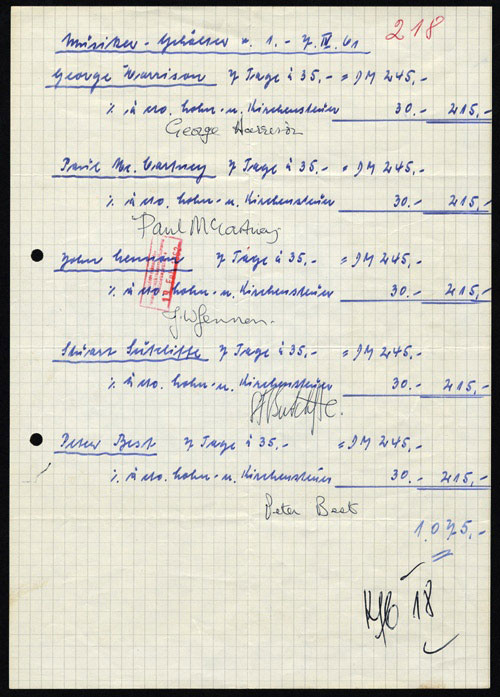 218
Musiker-Gehälter v. 1. - 7. IV. 61
George Harrison 7 Tage à 35,- = DM 245,-
% Lohn- u. Kirchensteuer 30.- 215,-
George Harrison
Paul Mc. Cartney 7 Tage à 35,- = DM 245,-
% Lohn- u. Kirchensteuer 30.- 215,-
Paul McCartney
John Lennon 7 Tage à 35,- = DM 245,-
% Lohn- u. Kirchensteuer 30.- 215,-
J. W. Lennon.
Stuart Sutcliffe 7 Tage à 35,- = DM 245,-
% Lohn- u. Kirchensteuer 30.- 215,-
Peter Best 7 Tage à 35,- = DM 245,-
% Lohn- u. Kirchensteuer 30.- 215,-
Peter Best
1.075,-
18